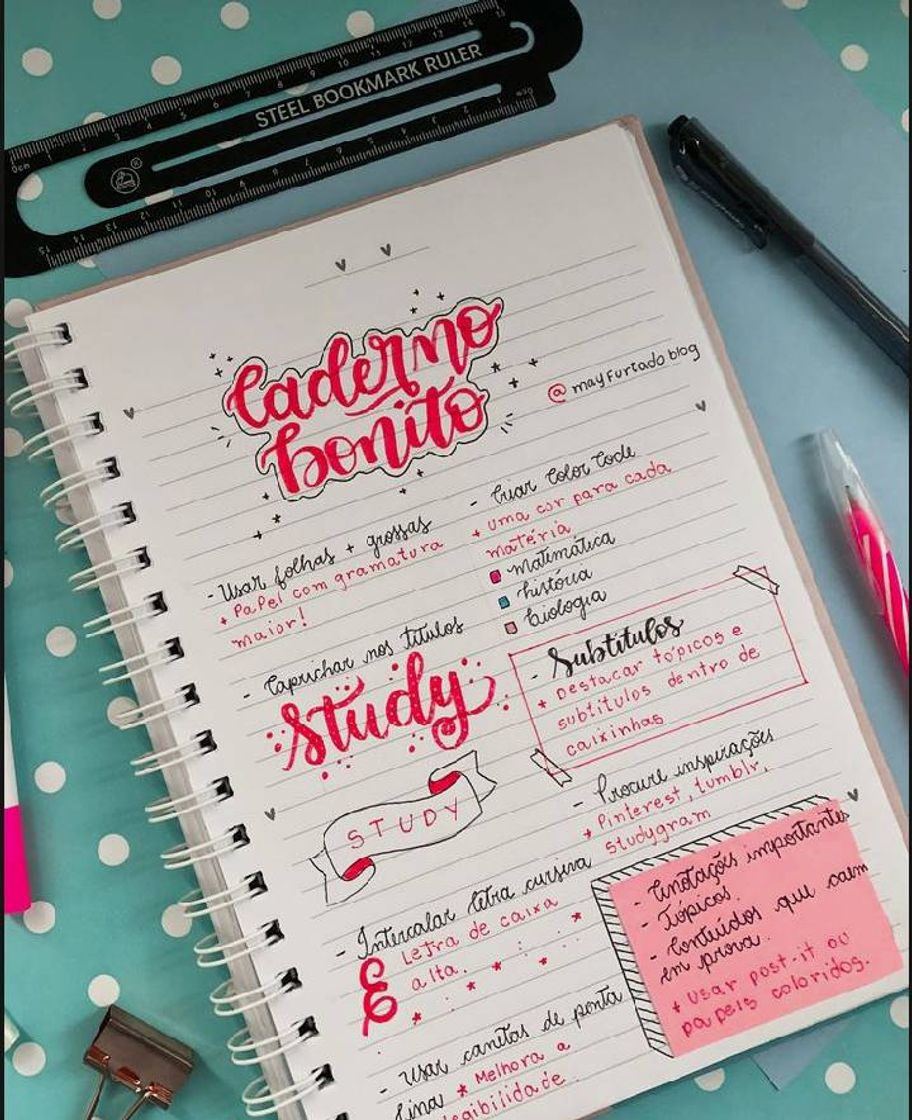 STEEL BOOKMARK RULER
caderno
bonito
@mayfurtado blog
- Usar folhas + grossas
* Papel com gramatura
maior!
- Criar Color Code
* uma cor para cada
matéria
matemática
história
biologia
- Caprichar nos títulos
Study
STUDY
- Subtítulos
* Destacar tópicos e
subtítulos dentro de
caixinhas
- Procure inspirações
* Pinterest, tumblr,
studygram
- Intercalar letra cursiva
E Letra de caixa
alta.
- Anotações importantes
- Tópicos
- Conteúdos que caem
em prova.
* Usar post-it ou
papeis coloridos.
- Usar canetas de ponta
fina * Melhora a
legibilidade